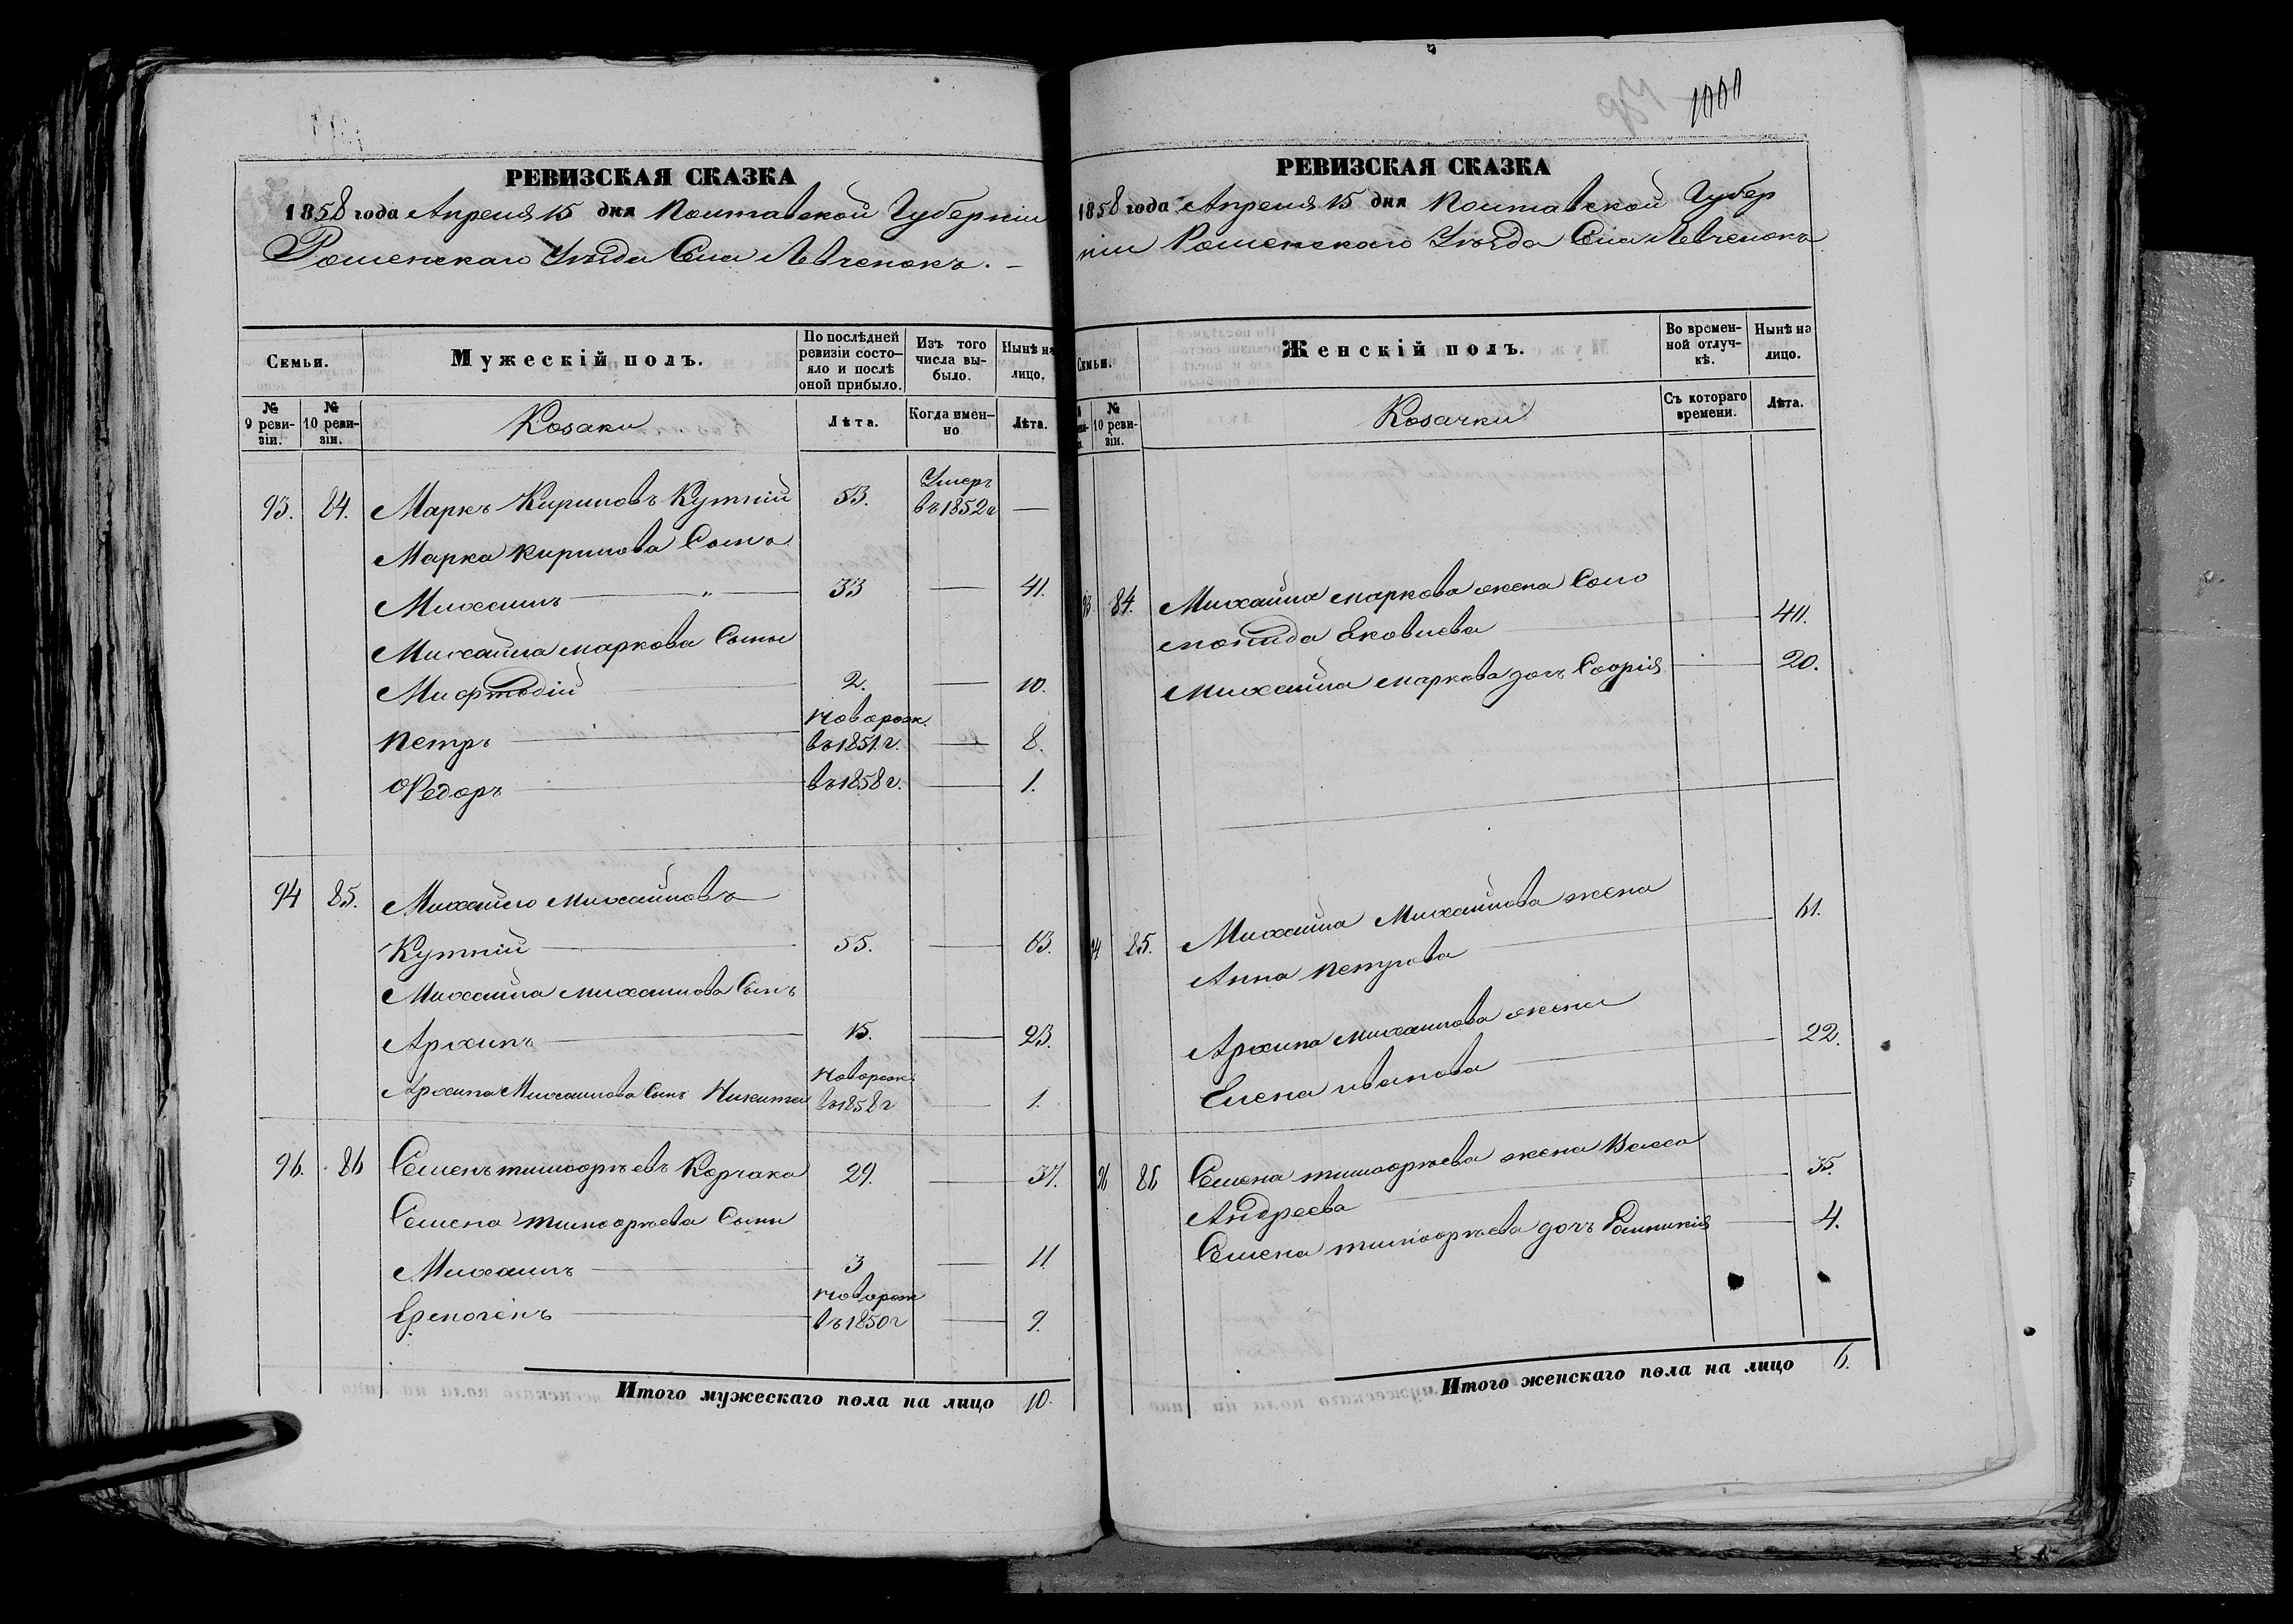 РЕВИЗСКАЯ СКАЗКА
1858 года Апреля 15 дня Полтавской Губерніи
Роменскаго Уѣзда Села Левченокъ.
Семьи.
Мужескій полъ.
По послѣдней ревизіи состояло и послѣ оной прибыло.
Изъ того числа выбыло.
Нынѣ на лицо.
№ 9 ревизіи.
№ 10 ревизіи.
Козаки
Лѣта.
Когда именно
Лѣта.
93. 84. Маркъ Кириловъ Кутній 53. Умеръ въ 1852 г —
Марка Кирилова Сынъ
Михаилъ — " — 33 — 41.
Михайла Маркова Сыны
Мифтодій — 2. — 10.
Петръ — новорож. въ 1851 г. — 8.
Федоръ — въ 1858 г. — 1.
94 85. Михайло Михайловъ
Кутній — 55. — 63.
Михайла Михайлова Сынъ
Архипъ — 15. — 23.
Архипа Михайлова Сынъ Никита новорож. въ 1858 г — 1.
96. 86 Семенъ Тимофѣевъ Корчака 29. — 37.
Семена Тимофѣева Сыны
Михаилъ — 3 — 11
— новорож въ 1850 г — 9.
Итого мужескаго пола на лицо 10.
1000
РЕВИЗСКАЯ СКАЗКА
1858 года Апреля 15 дня Полтавской Губер
ніи Роменскаго Уѣзда Села Левченокъ
Семьи.
Женскій полъ.
Во временной отлучкѣ.
Нынѣ на лицо.
№ 10 ревизіи.
Козачки
Съ котораго времени.
Лѣта.
93. 84. Михайла Маркова жена Соло
монида Яковлева — 40.
Михайла Маркова дочь Софія — 20.
94 85. Михайла Михайлова жена
Анна Петрова — 61.
Архипа Михайлова жена
Елена Иванова — 22.
96 86 Семена Тимофѣева жена Васса
Андреева — 35.
Семена Тимофѣева дочь — 4.
Итого женскаго пола на лицо 6.